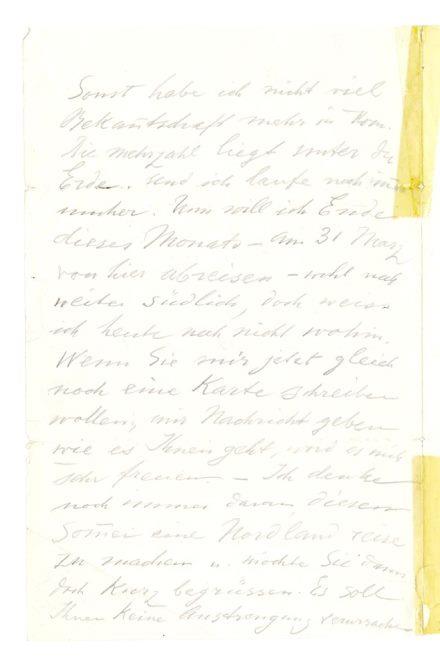 Sonst habe ich nicht viel
Bekanntschaft mehr in Rom.
Die mehrzahl liegt unter der
Erde. und ich laufe noch
umher. Nun will ich Ende
dieses Monats – am 31 März
von hier abreisen – wohl nach
weiter südlich, doch weiss
ich heute noch nicht wohin.
Wenn Sie mir jetzt gleich
noch eine Karte schreiben
wollen, mir Nachricht geben
wie es Ihnen geht, wird es mich
sehr freuen. – Ich denke
noch immer daran, diesen
Sommer eine Nordlandreise
zu machen u. möchte Sie dann
doch kurz begrüssen. Es soll
Ihnen keine Anstrengung verursachen